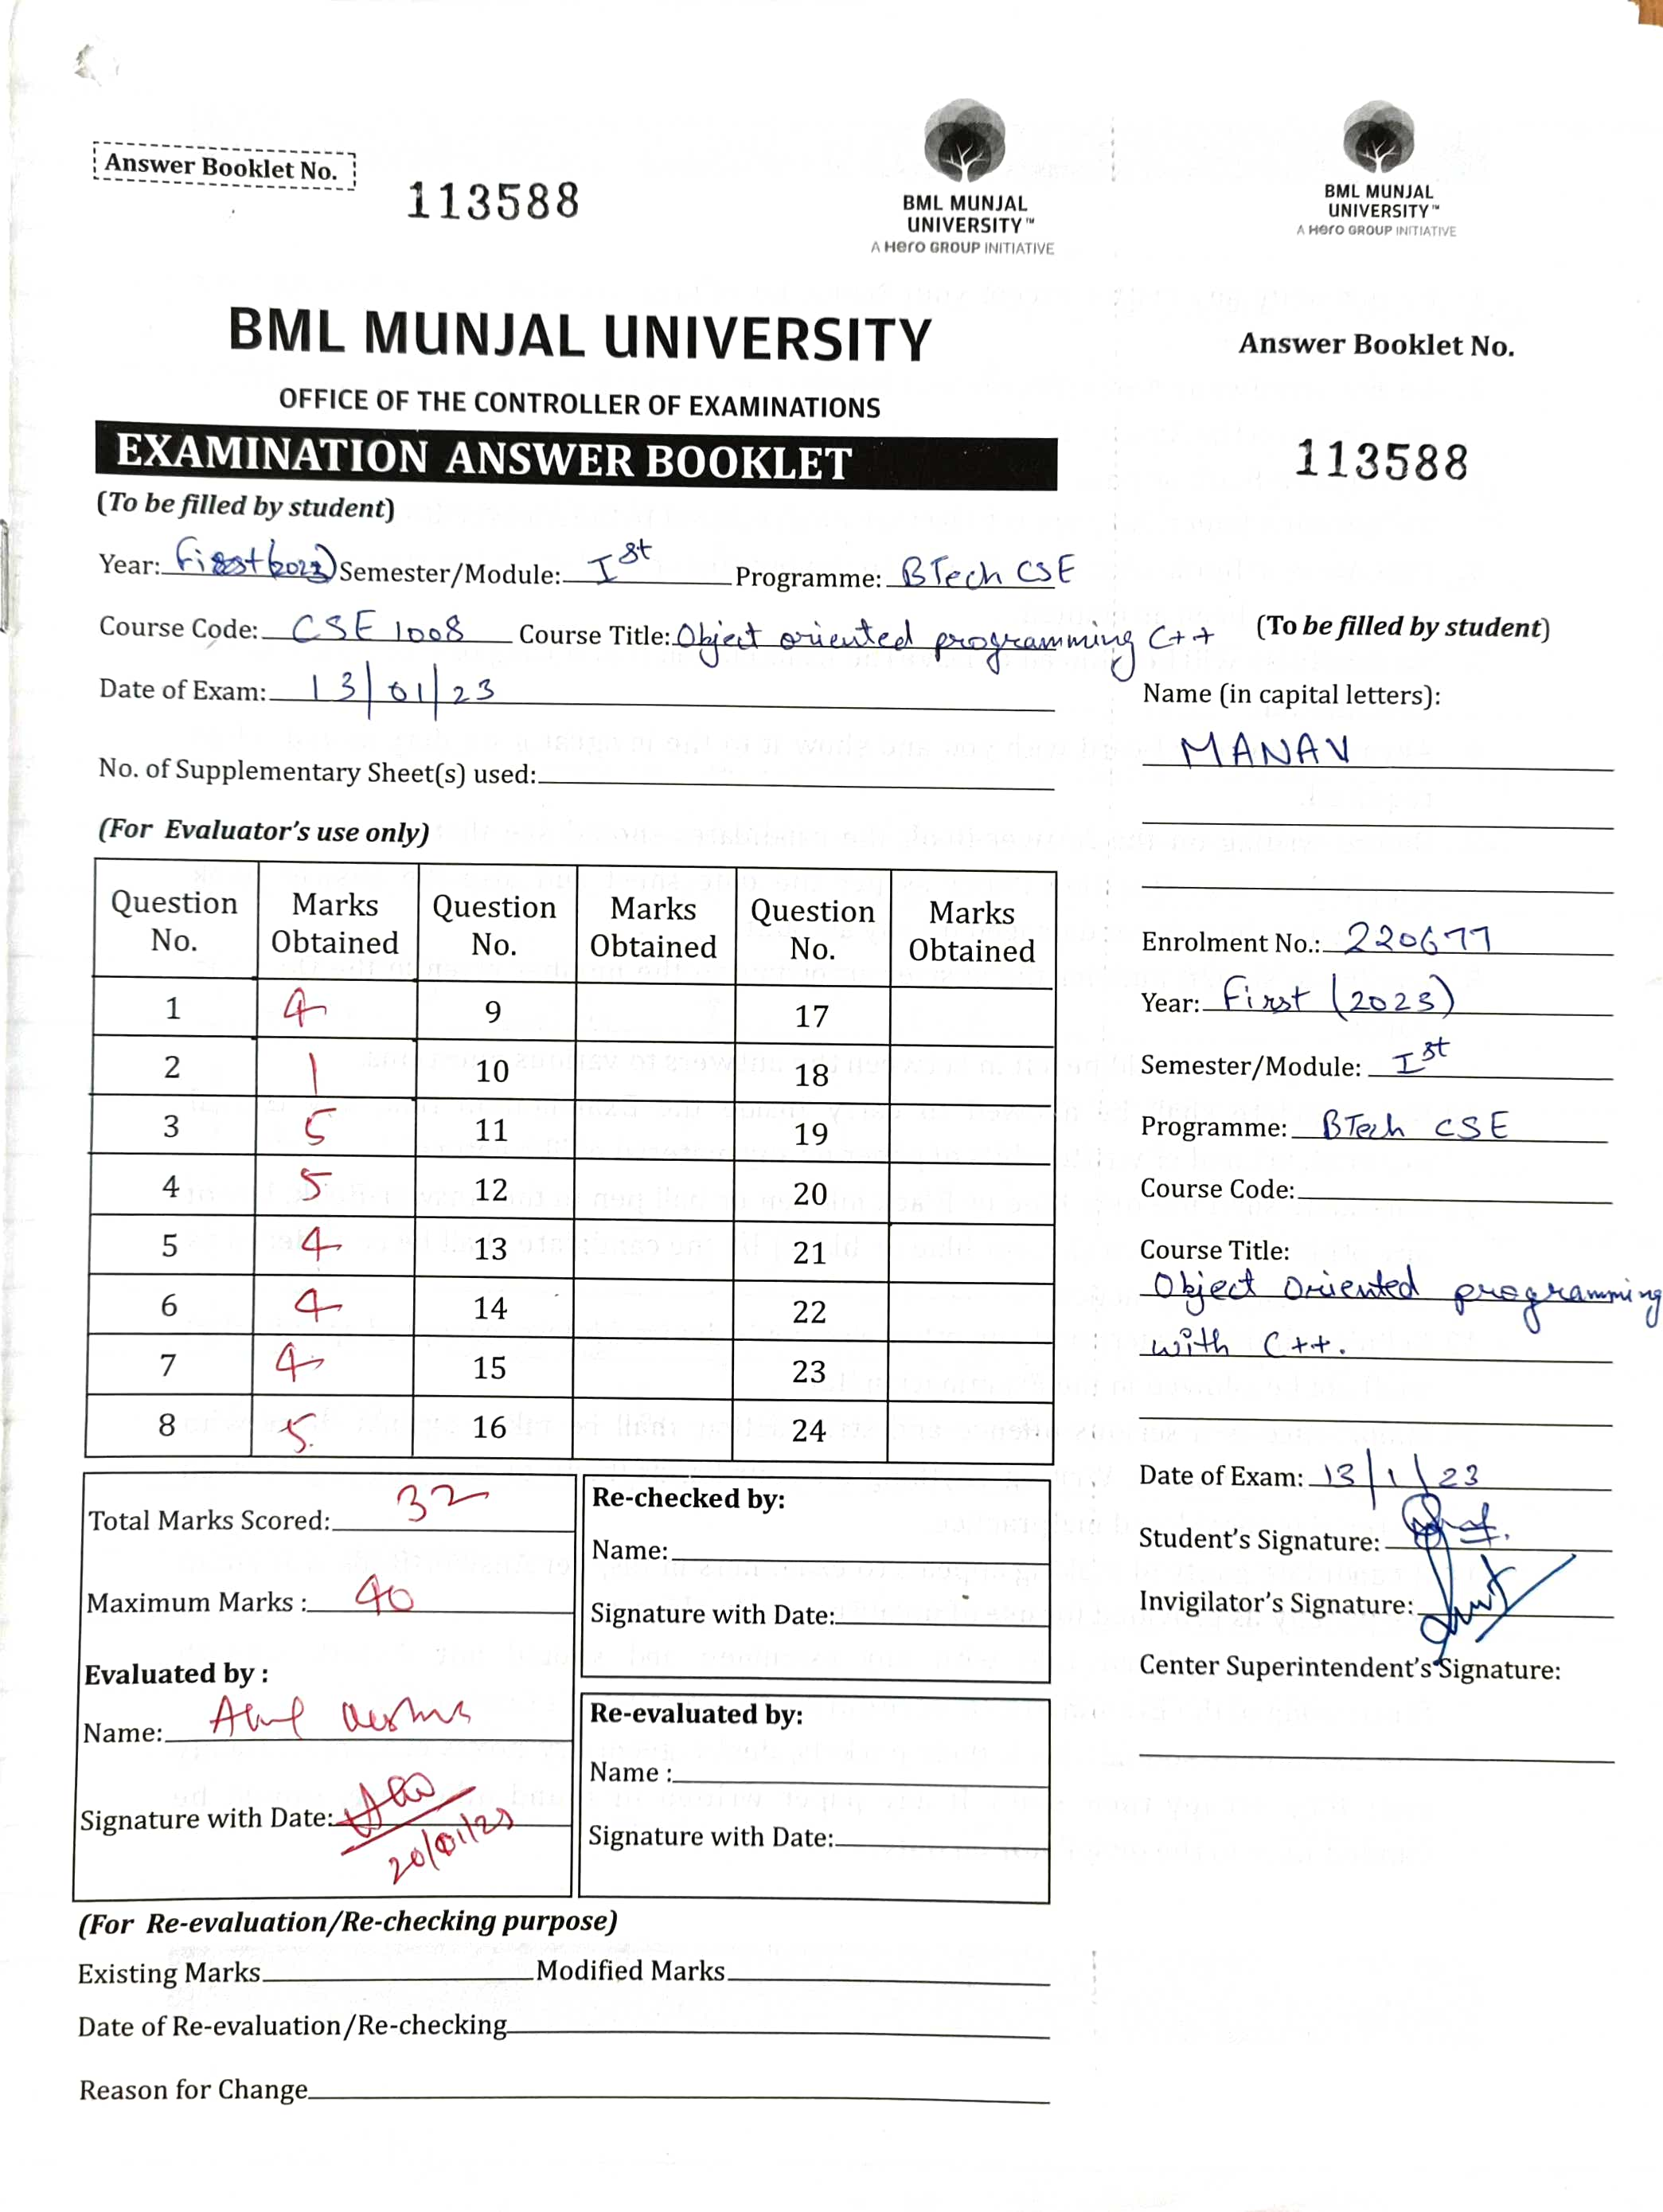 Answer Booklet No.
113588
BML MUNJAL
UNIVERSITY™
A Hero GROUP INITIATIVE
BML MUNJAL UNIVERSITY
OFFICE OF THE CONTROLLER OF EXAMINATIONS
EXAMINATION ANSWER BOOKLET
(To be filled by student)
Year: First (2023) Semester/Module: Ist Programme: BTech CSE
Course Code: CSE 1008 Course Title: Object oriented programming C++
Date of Exam: 13/01/23
No. of Supplementary Sheet(s) used:
(For Evaluator's use only)
Question No. Marks Obtained Question No. Marks Obtained Question No. Marks Obtained
1 4 9 17
2 1 10 18
3 5 11 19
4 5 12 20
5 4 13 21
6 4 14 22
7 4 15 23
8 5 16 24
Total Marks Scored: 32
Maximum Marks : 40
Evaluated by :
Name:
Signature with Date: 20/01/23
Re-checked by:
Name:
Signature with Date:
Re-evaluated by:
Name :
Signature with Date:
(For Re-evaluation/Re-checking purpose)
Existing Marks Modified Marks
Date of Re-evaluation/Re-checking
Reason for Change
BML MUNJAL
UNIVERSITY™
A Hero GROUP INITIATIVE
Answer Booklet No.
113588
(To be filled by student)
Name (in capital letters):
MANAV
Enrolment No.: 220677
Year: First (2023)
Semester/Module: Ist
Programme: BTech CSE
Course Code:
Course Title:
Object Oriented programming
with C++.
Date of Exam: 13/1/23
Student's Signature:
Invigilator's Signature:
Center Superintendent's Signature: